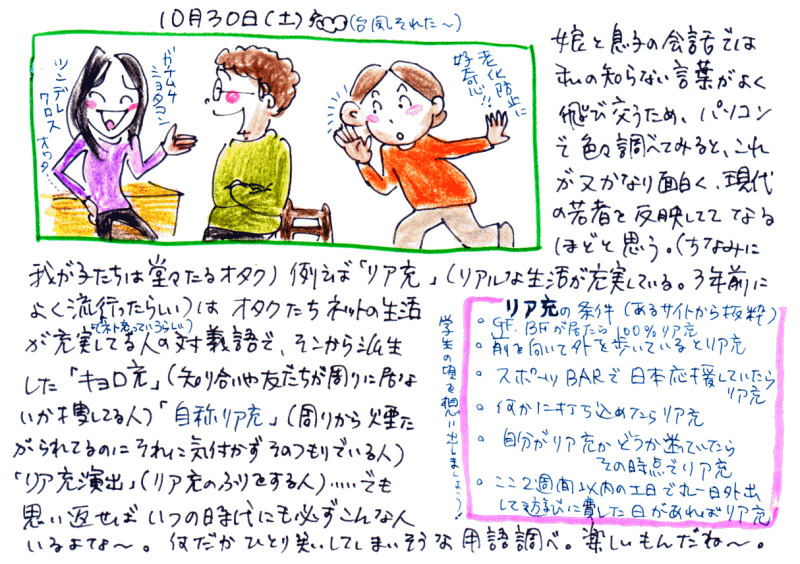 10月30日(土) (台風それた〜)
ガチムチ
ショタコン
ツンデレ
クロス
オワタ
老化防止に
好奇心!!
娘と息子の会話では
私の知らない言葉がよく
飛び交うため、パソコン
で色々調べてみると、これ
が又かなり面白く、現代
の若者を反映してて なる
ほどと思う。(ちなみに
我が子たちは堂々たるオタク) 例えば「リア充」(リアルな生活が充実している。3年前に
よく流行ったらしい)は オタクたち ネットの生活
(ネト充っていうらしい)
が充実してる人の対義語で、そこから派生
した「キョロ充」(知り合いや友だちが周りに居な
いか捜してる人)「自称リア充」(周りから煙た
がられてるのに それに気付かず そのつもりでいる人)
「リア充演出」(リア充のふりをする人)……でも
思い返せば いつの時代にも必ずこんな人
いるよなァ〜。何だか ひとり笑いしてしまいそうな 用語調べ。楽しいもんだね〜。
学生の頃を想い出しましょう!
リア充の条件(あるサイトから抜粋)
• GF. BFが居たら 100%リア充
• 前を向いて外を歩いているとリア充
• スポーツBARで 日本応援していたら
リア充
• 何かに打ち込めたらリア充
• 自分がリア充か どうか迷っていたら
その時点でリア充
• ここ2週間以内の土日で丸一日外出
して遊びに費した日があればリア充